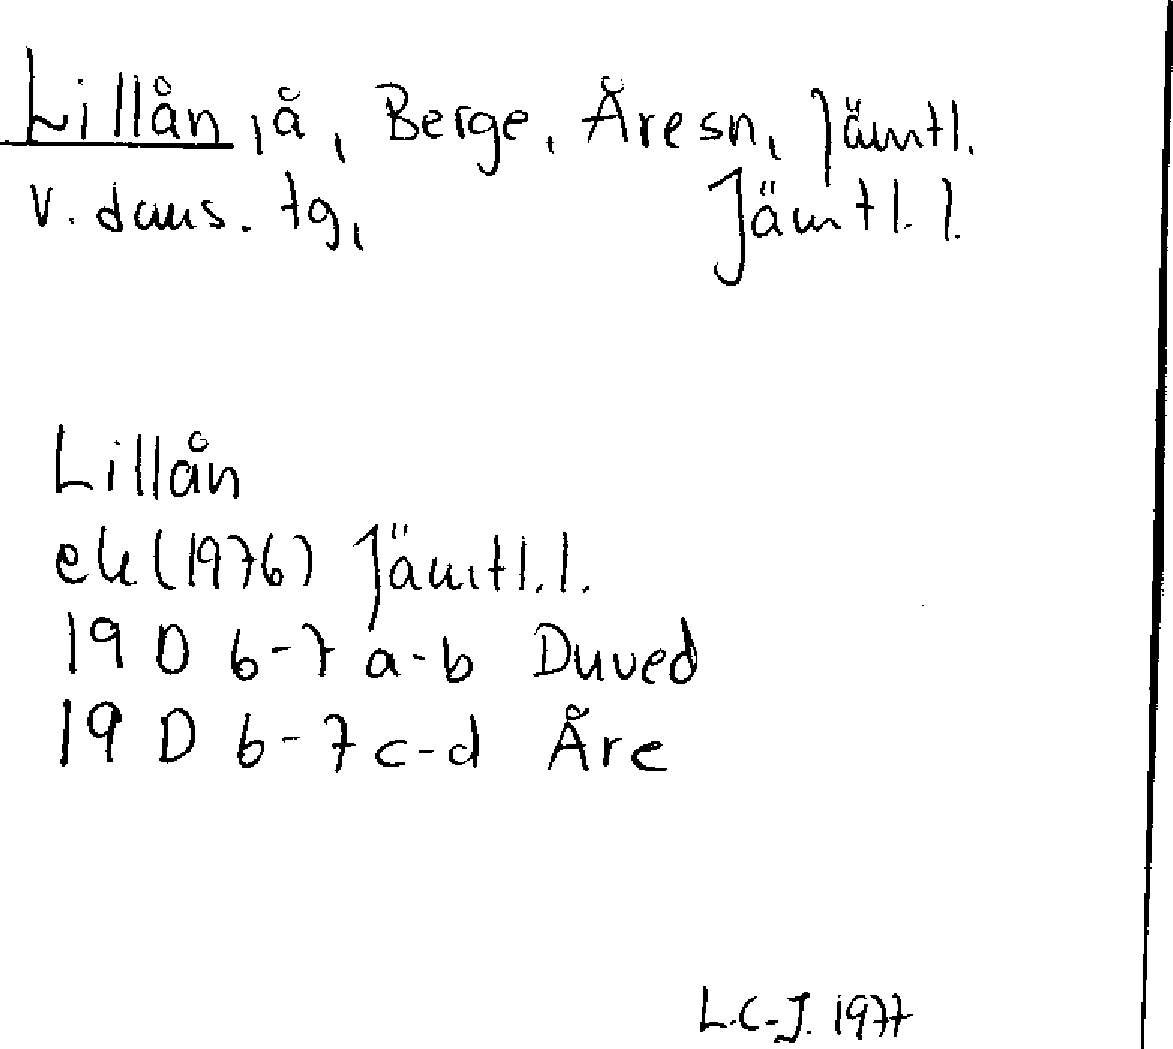 Lillån, å, Berge, Åre sn, Jämtl.
v. dams. tg, Jämtl. l.
Lillån
ek (1976) Jämtl. l.
19 D 6-7 a-b Duved
19 D 6-7 c-d Åre
L.C-J. 1977